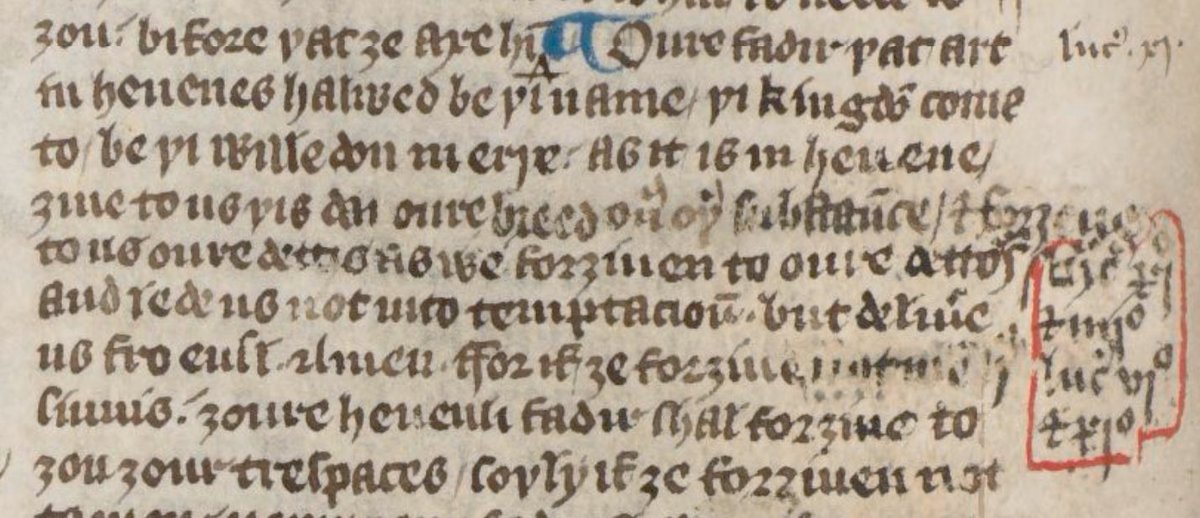 ȝou: bifore þat ȝe axe hī ¶ Oure fadir þat art luc̄. xj.
in heuenes halwed be þi name / þi kingdō come
to / be þi wille don in erþe: as it is in heuene /
ȝiue to us þis dai oure breed ou̅ oþ̅ substaūce / & forȝeue
to us oure dettis as we forȝiuen to oure dettos̄
and lede us not into temptacioū. but deliūe
us fro euil. amen. ffor if ȝe forȝiue
luc̄ vj°
sinnis: ȝoure heuenli fadir shal forȝiue to
& xj°
ȝou ȝour trespaces / soþly if ȝe forȝiuen not